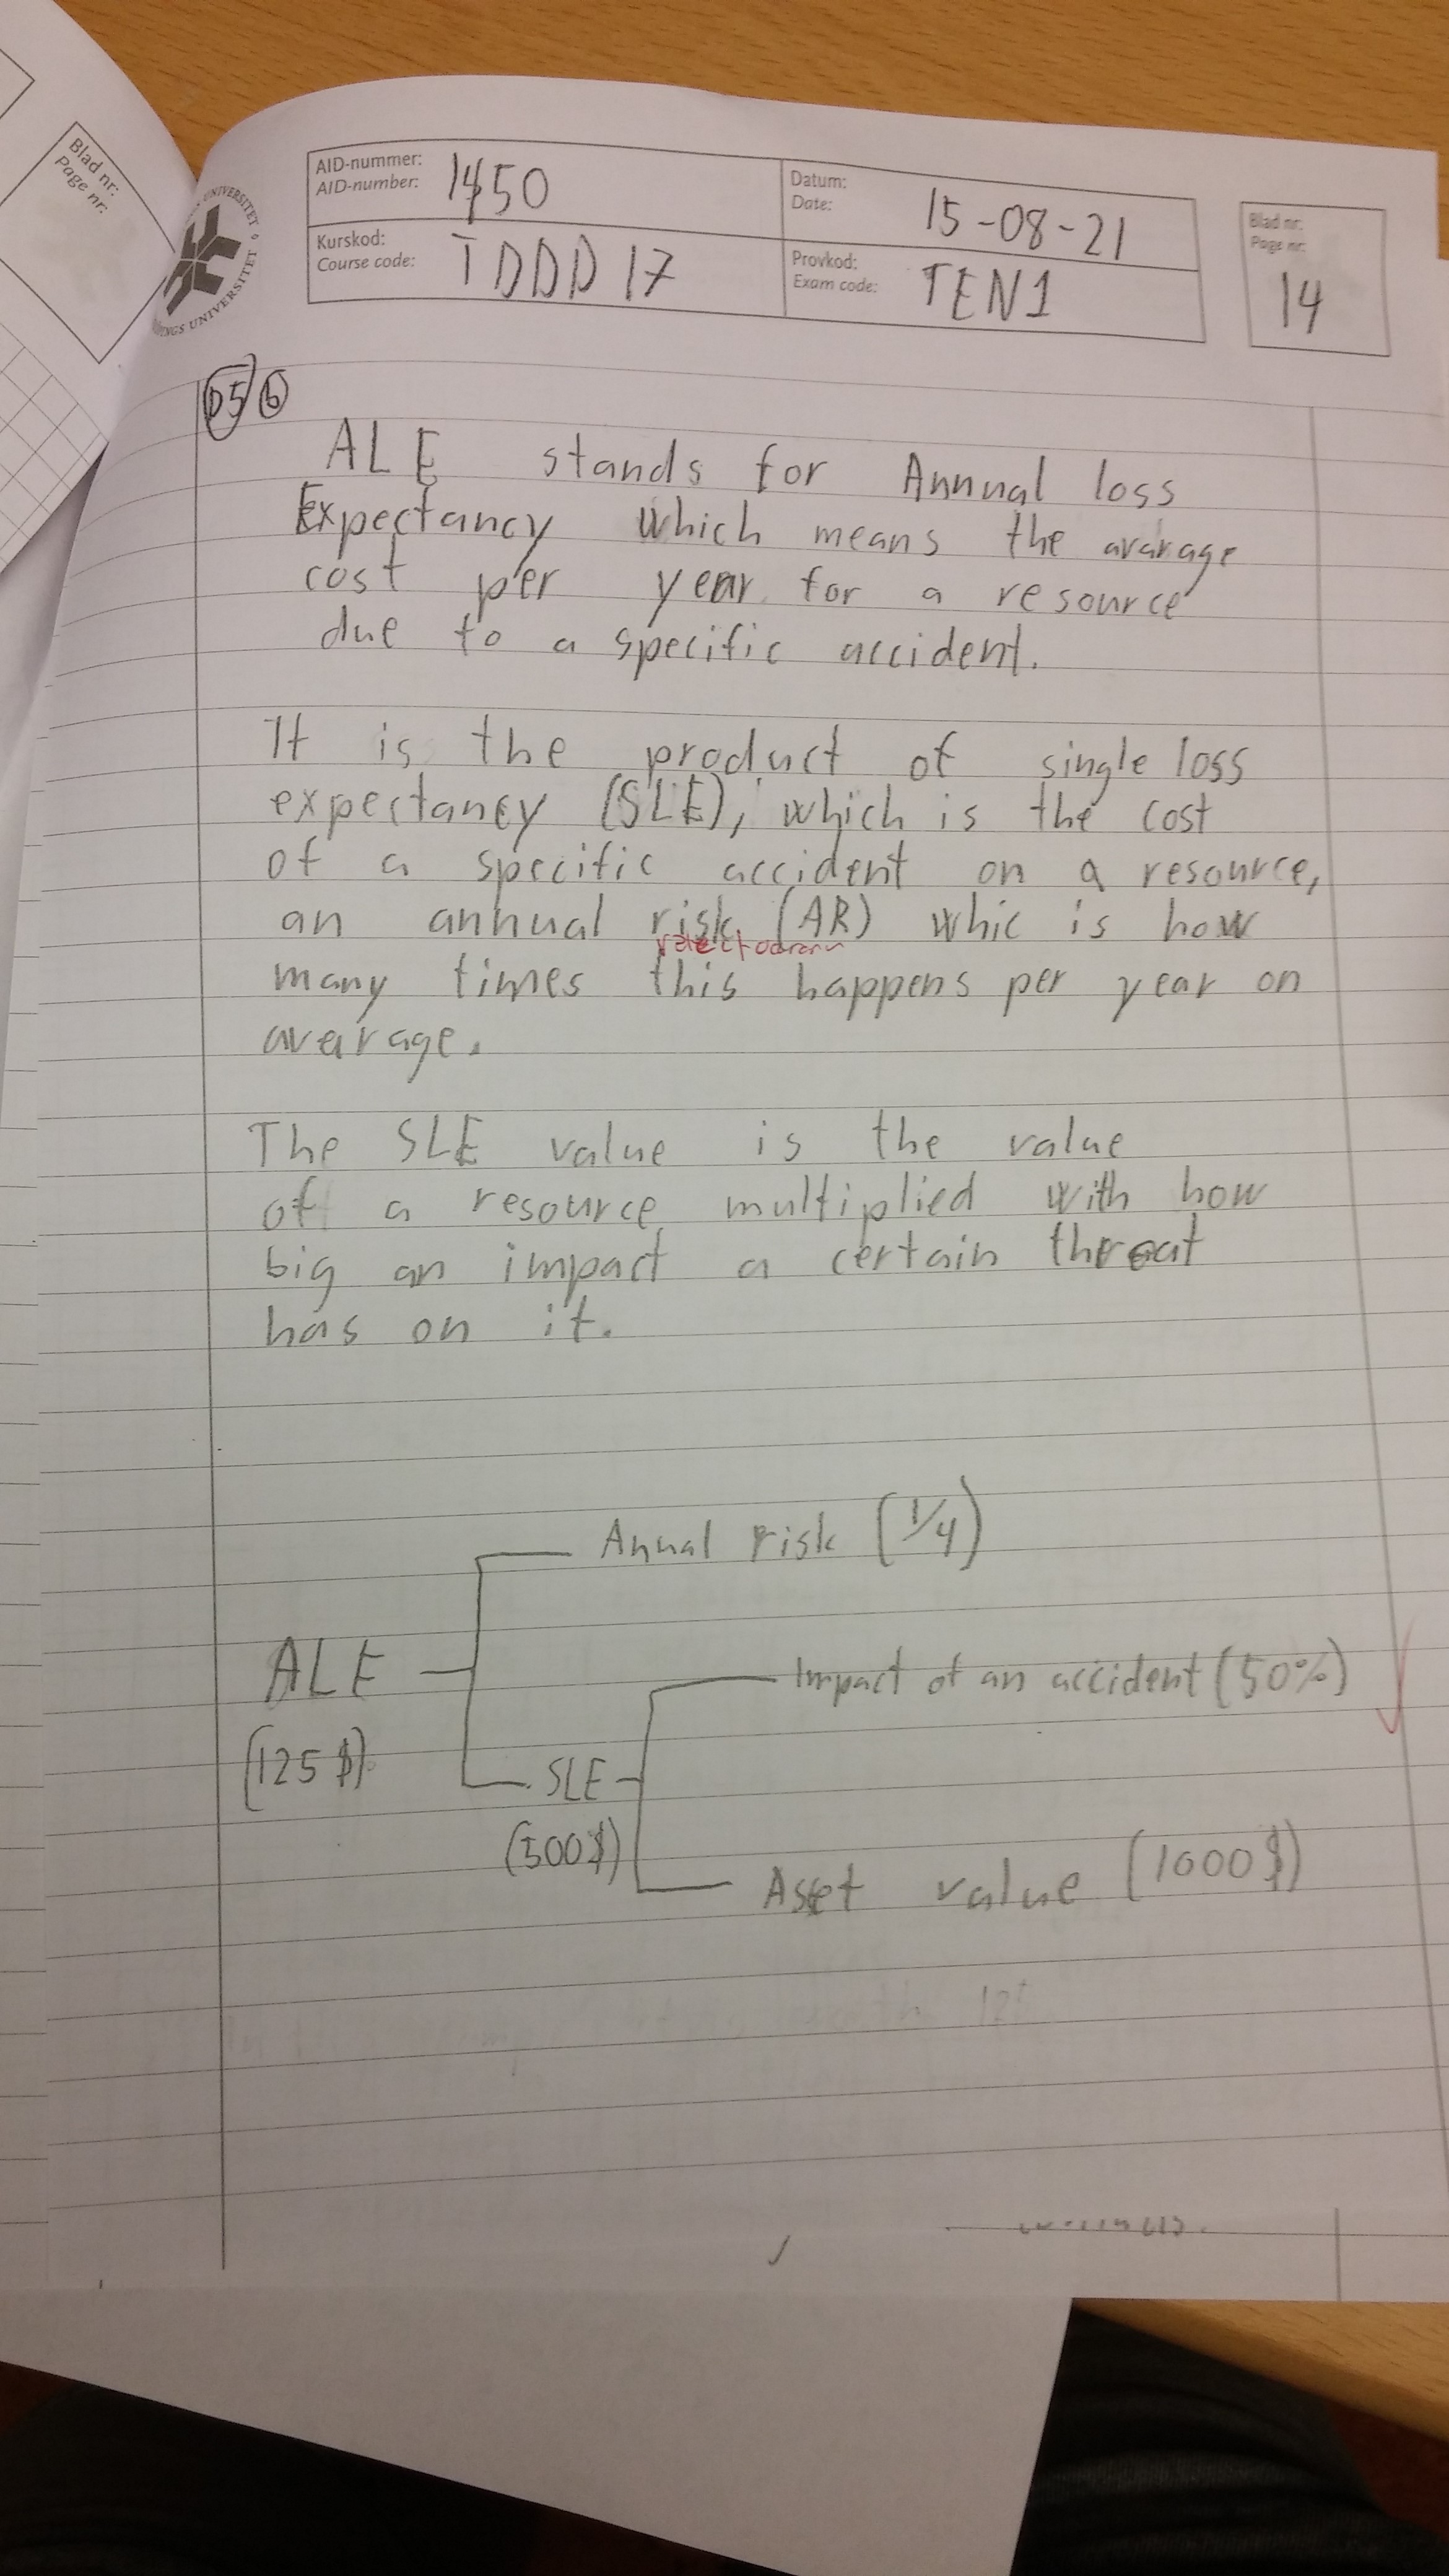 Blad nr:
Page nr:
UNIVERSITET
INGS UNIVERSITET
AID-nummer:
AID-number:
1450
Datum:
Date:
15-08-21
Kurskod:
Course code:
TDDD17
Provkod:
Exam code:
TEN1
Blad nr:
Page nr:
14
D5 b
ALE stands for Annual loss
Expectancy which means the avarage
cost per year for a resource
due to a specific accident.
It is the product of single loss
expectancy (SLE), which is the cost
of a specific accident on a resource,
an annual risk (AR) whic is how
many times this happens per year on
avarage.
The SLE value is the value
of a resource multiplied with how
big an impact a certain threat
has on it.
Anual risk (1/4)
ALE
Impact of an accident (50%)
(125$)
SLE
(500$)
Asset value (1000$)